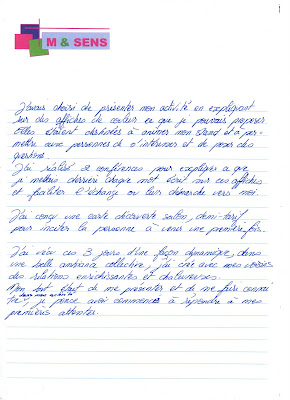 M & SENS
J'avais choisi de présenter mon activité en expliquant
sur des affiches de couleur ce que je pouvais proposer
Elles étaient destinées à animer mon stand et à per-
mettre aux personnes de s'intéresser et de poser des
questions.
J'ai réalisé 2 conférences pour expliquer ce que
je mettais derrière chaque mot écrit sur ces affiches
et faciliter l'échange ou leur démarche vers moi.
J'ai conçu une carte découverte salon, demi-tarif
pour inciter la personne à venir une première fois.
J'ai vécu ces 3 jours d'une façon dynamique, dans
une belle ambiance collective, j'ai créé avec mes voisins
des relations enrichissantes et chaleureuses.
Mon but était de me présenter et de me faire connaî
tre dans mon activité, je pense avoir commencé à répondre à mes
premières attentes.